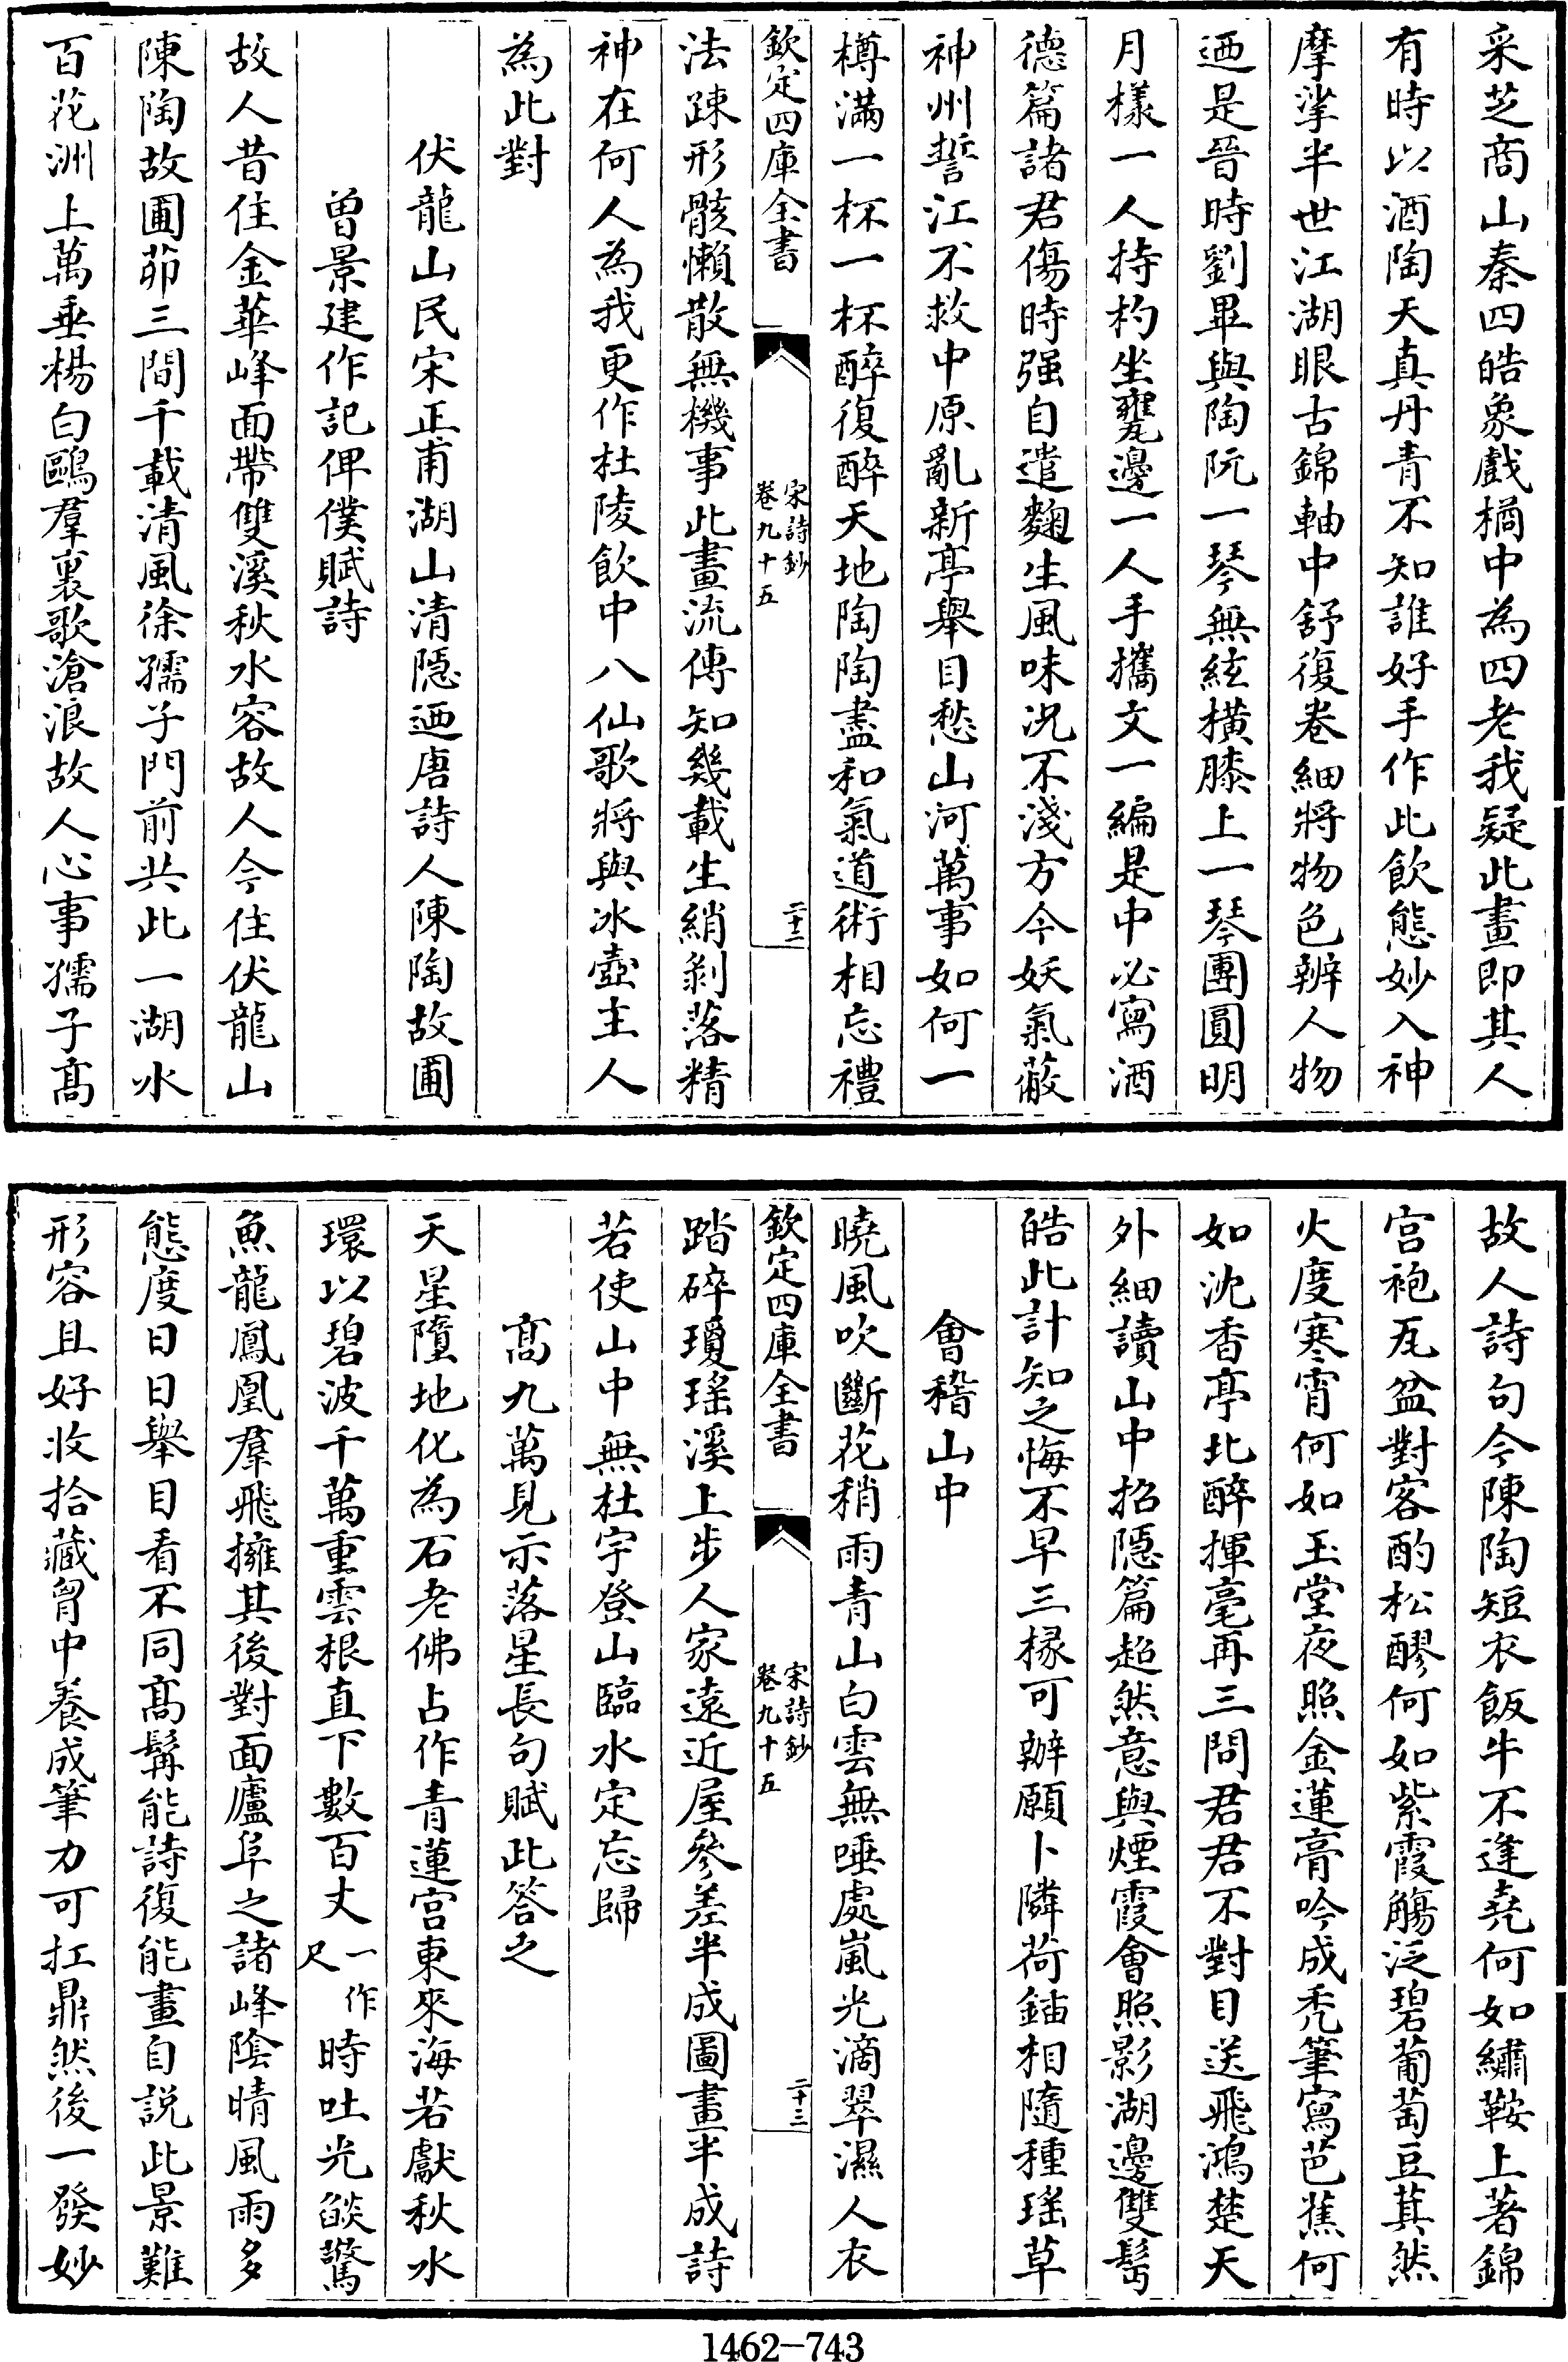 采芝商山秦四皓象戲橘中為四老我疑此畫即其人
有時以酒陶天真丹青不知誰好手作此飲態妙入神
摩挲半世江湖眼古錦軸中舒復卷細將物色辨人物
迺是晉時劉畢與陶阮一琴無絃橫膝上一琴團圓明
月樣一人持杓坐甕邊一人手攜文一編是中必寫酒
德篇諸君傷時强自遣麴生風味况不淺方今妖氣蔽
神州誓江不救中原亂新亭舉目愁山河萬事如何一
樽滿一杯一杯醉復醉天地陶陶盡和氣道術相忘禮
欽定四庫全書
宋詩鈔
卷九十五
二十二
法踈形骸懶散無機事此畫流傳知幾載生綃剝落精
神在何人為我更作杜陵飲中八仙歌將與冰壺主人
為此對
伏龍山民宋正甫湖山清隱迺唐詩人陳陶故圃
曾景建作記俾僕賦詩
故人昔住金華峰面帶雙溪秋水容故人今住伏龍山
陳陶故圃茆三間千載清風徐孺子門前共此一湖水
百花洲上萬垂楊白鷗羣裏歌滄浪故人心事孺子高
故人詩句今陳陶短衣飯牛不逢堯何如繡鞍上著錦
宫袍瓦盆對客酌松醪何如紫霞觴泛碧葡萄豆萁然
火度寒宵何如玉堂夜照金蓮膏吟成秃筆寫芭蕉何
如沈香亭北醉揮毫再三問君君不對目送飛鴻楚天
外細讀山中招隱篇超然意與煙霞會照影湖邊雙髩
皓此計知之悔不早三椽可辦願卜隣荷鍤相隨種瑤草
會稽山中
曉風吹斷花稍雨青山白雲無唾處嵐光滴翠濕人衣
欽定四庫全書
宋詩鈔
卷九十五
二十三
踏碎瓊瑤溪上步人家遠近屋參差半成圖畫半成詩
若使山中無杜宇登山臨水定忘歸
高九萬見示落星長句賦此答之
天星墮地化為石老佛占作青蓮宫東來海若獻秋水
環以碧波千萬重雲根直下數百丈一作尺時吐光燄驚
魚龍鳳凰羣飛擁其後對面廬阜之諸峰陰晴風雨多
態度日日舉目看不同高髯能詩復能畫自説此景難
形容且好收拾藏胷中養成筆力可扛鼎然後一發妙
1462-743